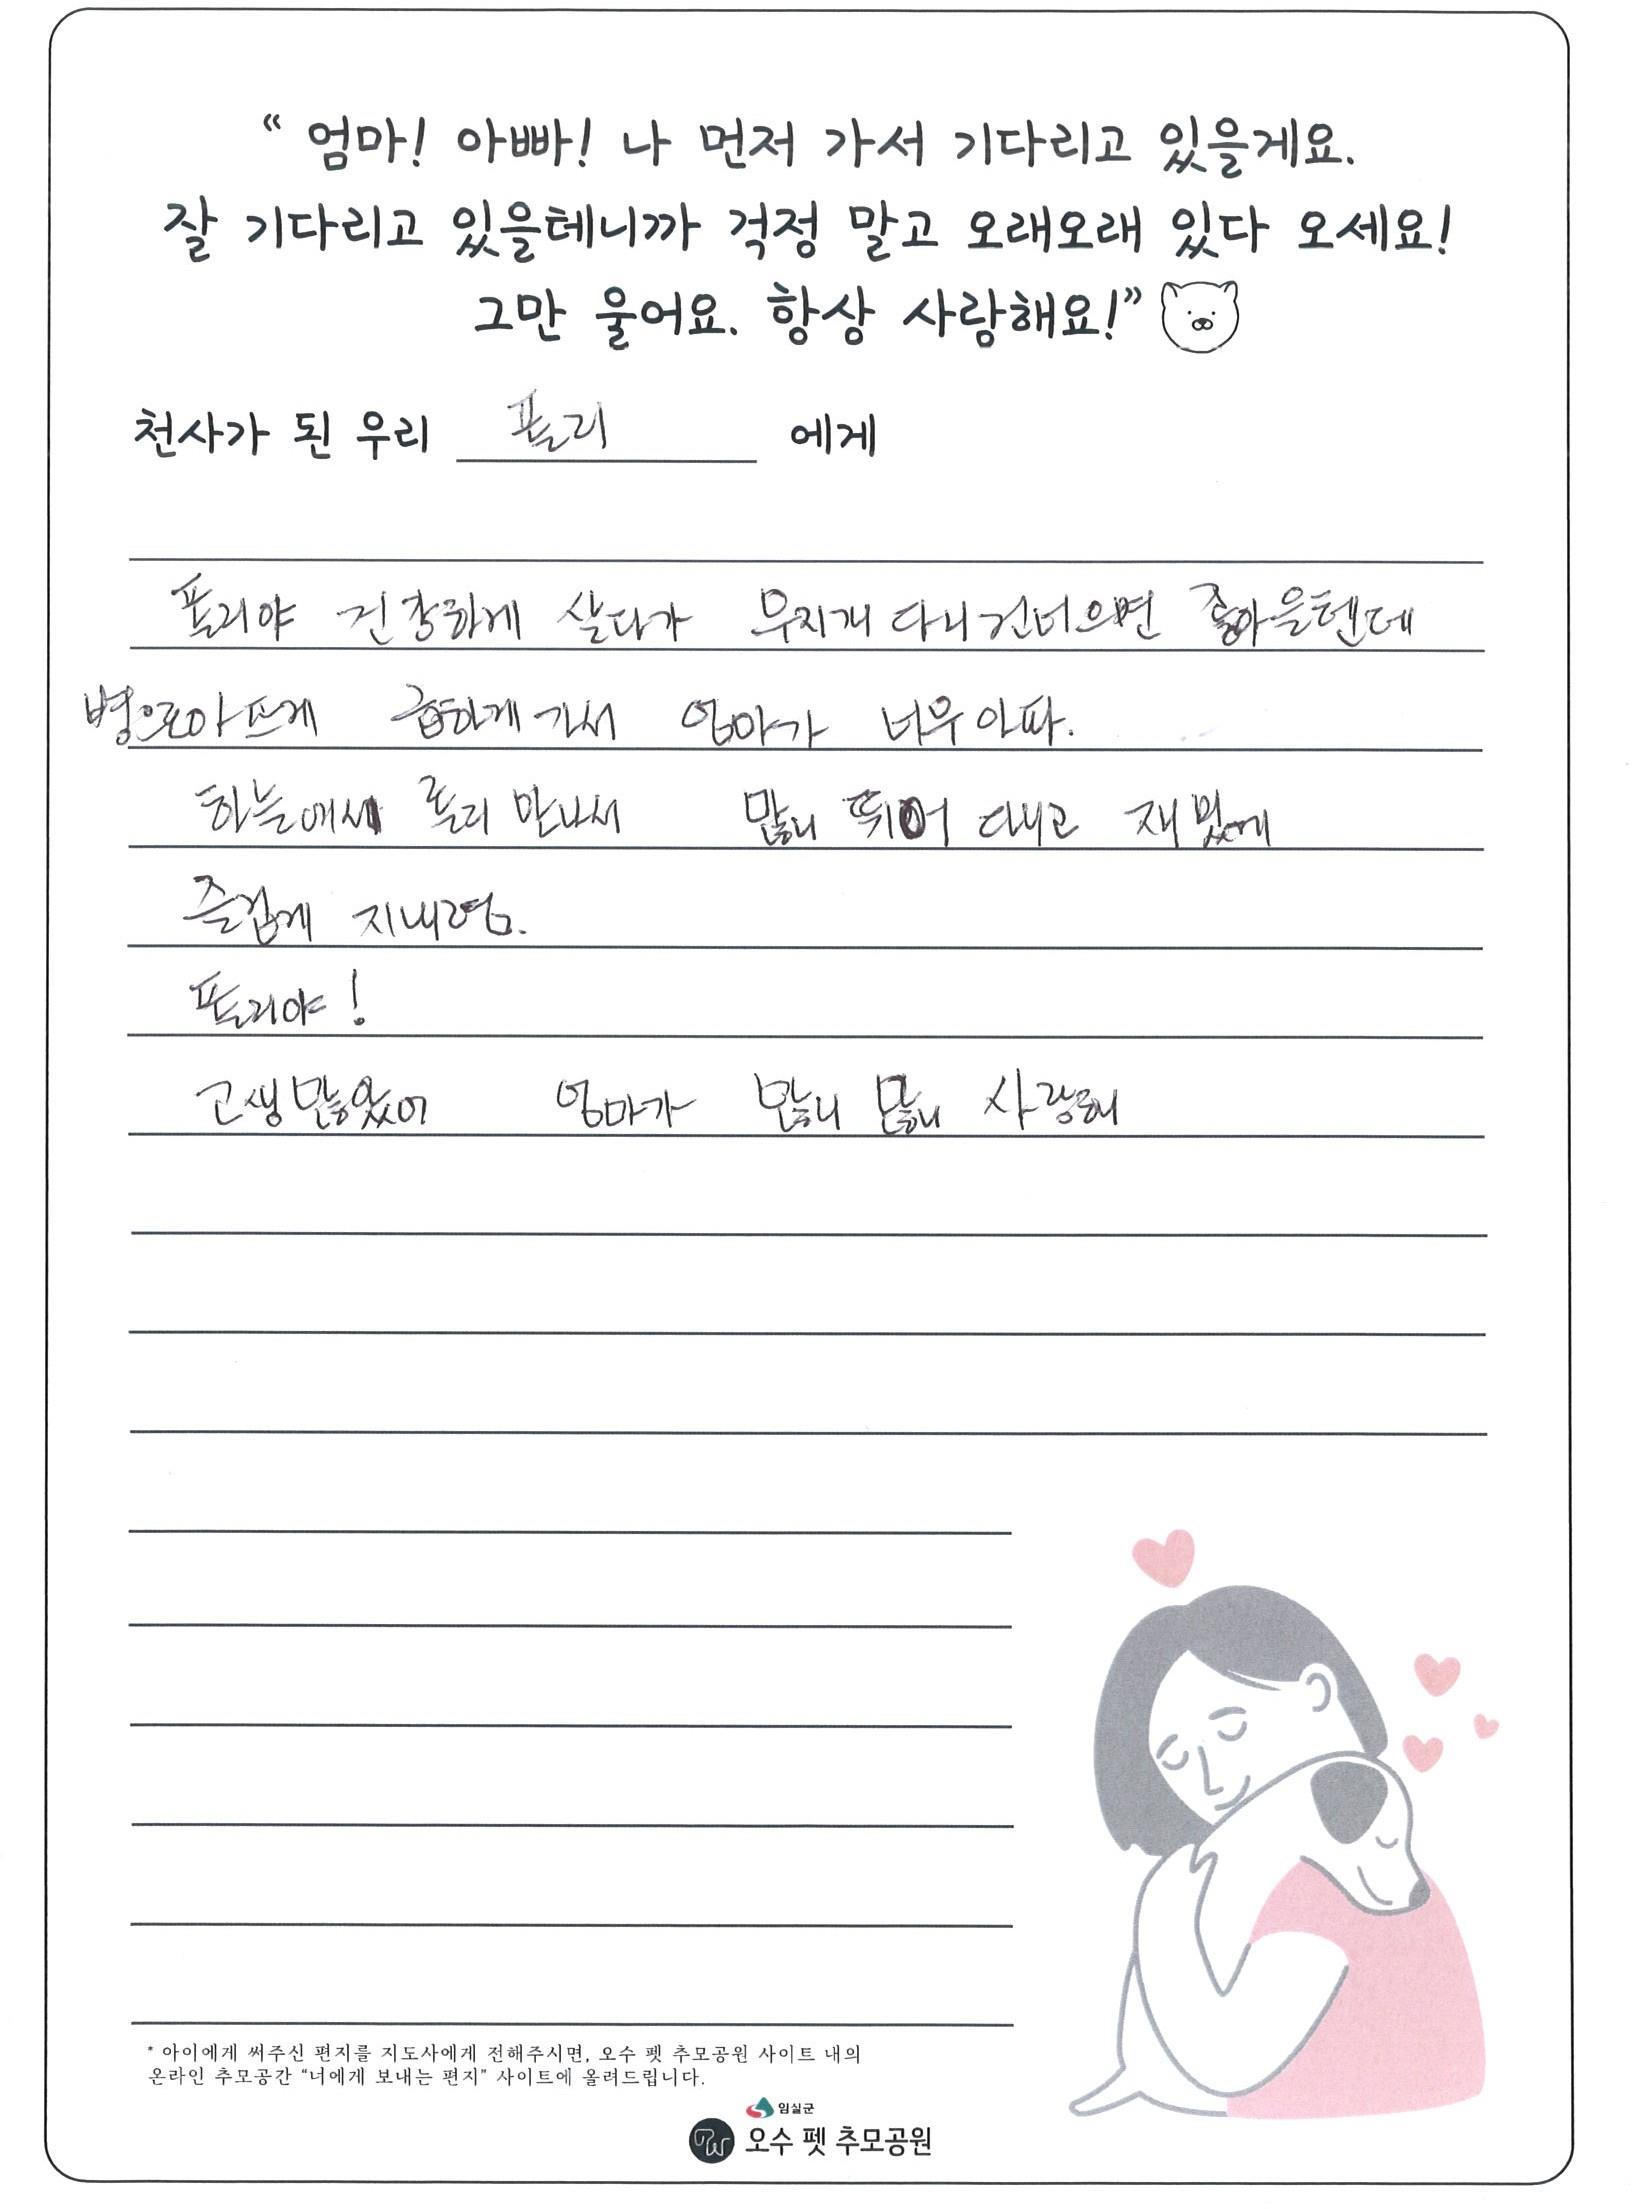 “ 엄마! 아빠! 나 먼저 가서 기다리고 있을게요.
잘 기다리고 있을테니까 걱정 말고 오래오래 있다 오세요!
그만 울어요. 항상 사랑해요!”
천사가 된 우리 폴리 에게
폴리야 건강하게 살다가 무지개 다니건너으면 좋아을텐데
병으로아프게 급하게 가서 엄마가 너무 아파.
하늘에서 롤리 만나서 많니 뛰어 다니고 재밌게
즐겁게 지내렴.
폴리야!
고생 많았어 엄마가 많니 많니 사랑해
* 아이에게 써주신 편지를 지도사에게 전해주시면, 오수 펫 추모공원 사이트 내의
온라인 추모공간 “너에게 보내는 편지” 사이트에 올려드립니다.
임실군
오수 펫 추모공원